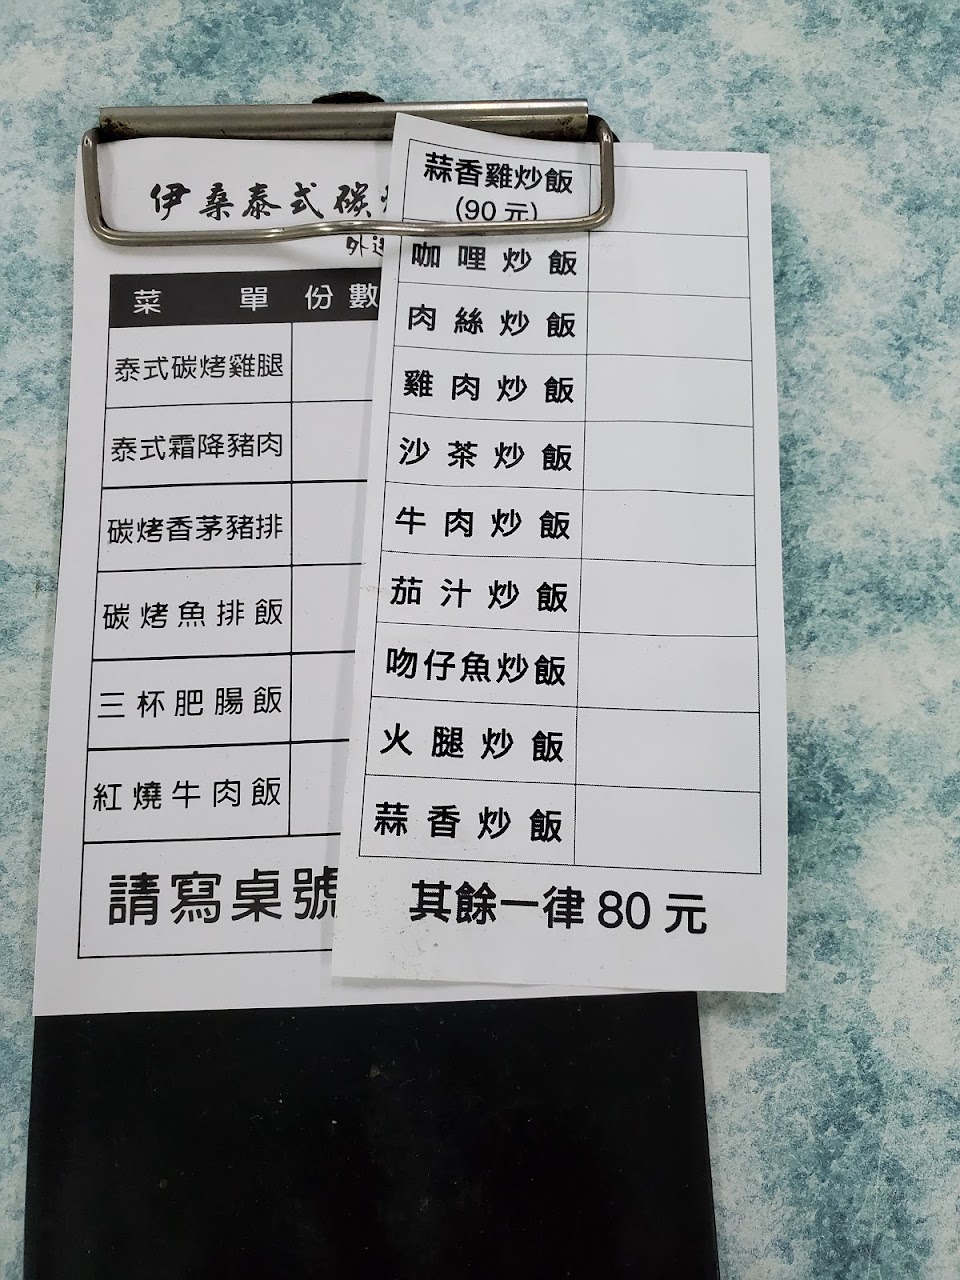 伊桑泰式碳
外送
菜單 份數
泰式碳烤雞腿
泰式霜降豬肉
碳烤香茅豬排
碳烤魚排飯
三杯肥腸飯
紅燒牛肉飯
請寫桌號
蒜香雞炒飯
(90元)
咖哩炒飯
肉絲炒飯
雞肉炒飯
沙茶炒飯
牛肉炒飯
茄汁炒飯
吻仔魚炒飯
火腿炒飯
蒜香炒飯
其餘一律80元